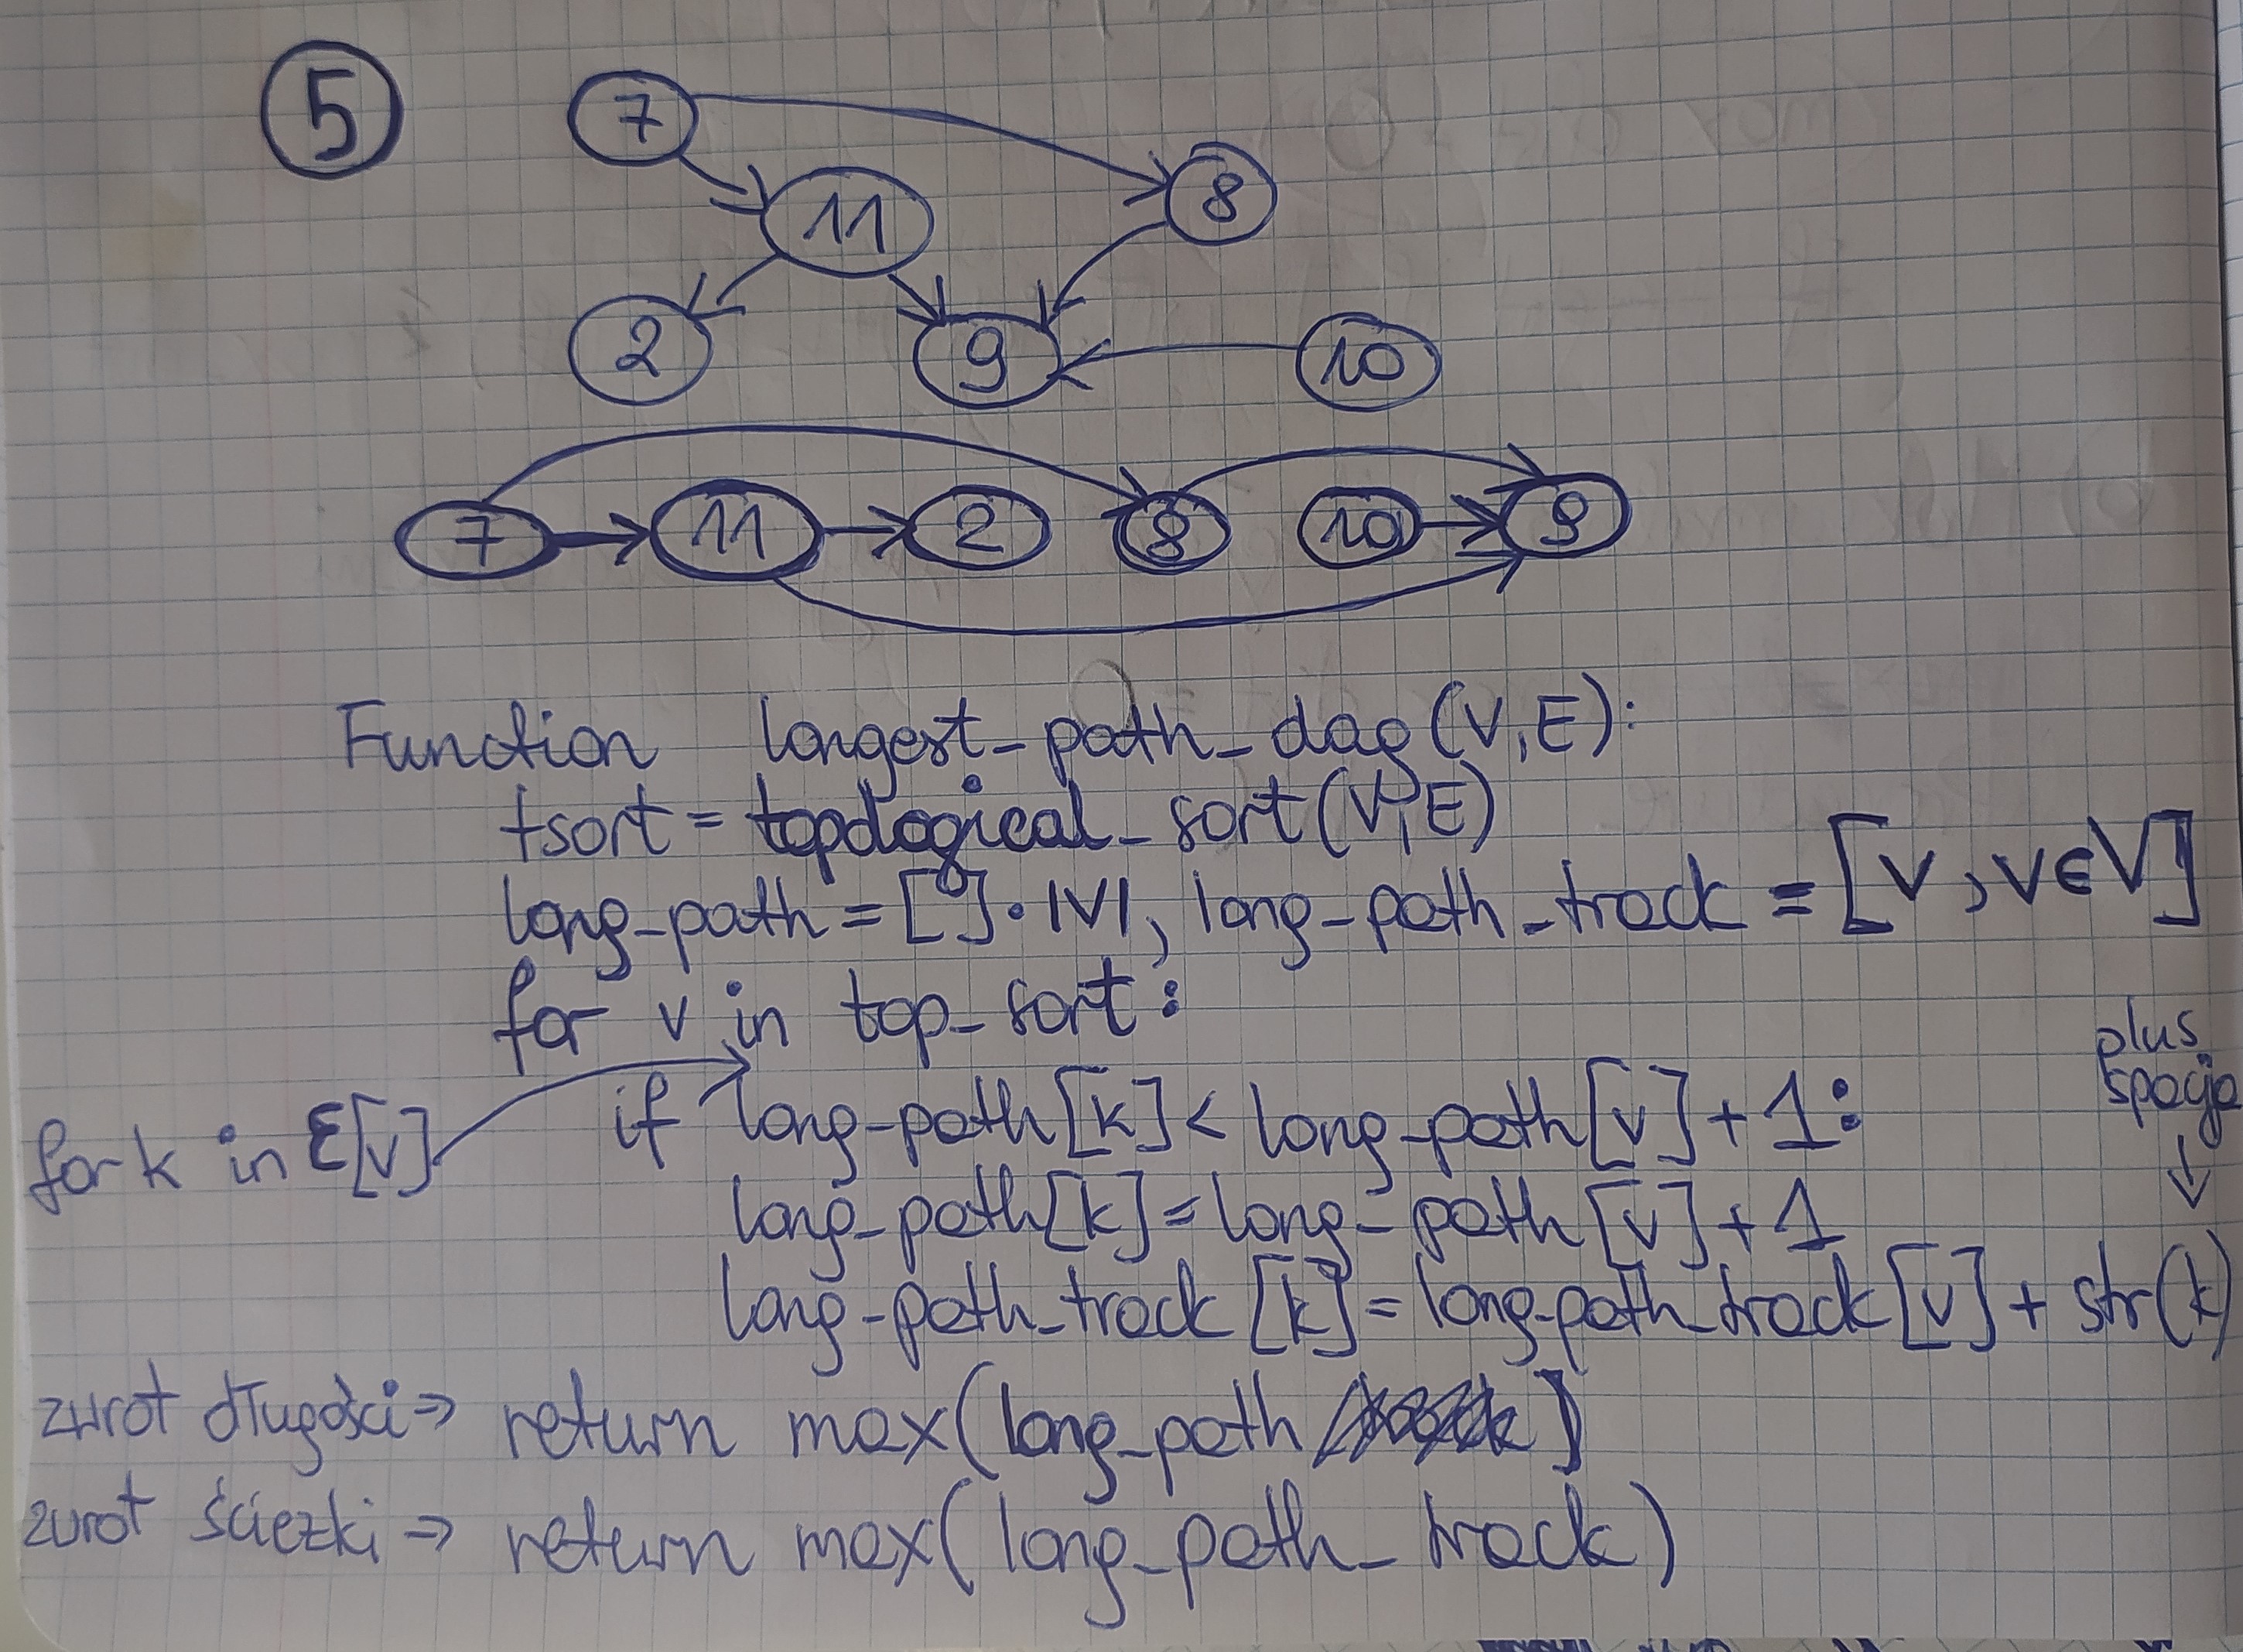 5
7
11
8
2
9
10
7 11 2 8 10 9
Function longest_path_dag(V,E):
tsort = topological_sort(V,E)
long_path = [0]·|V|, long_path_track = [v, v∈V]
for v in top_sort:
plus
spacja
↓
for k in E[v]
if long_path[k] < long_path[v] + 1:
long_path[k] = long_path[v] + 1
long_path_track[k] = long_path_track[v] + str(k)
zwrot długości => return max(long_path)
zwrot ścieżki => return max(long_path_track)